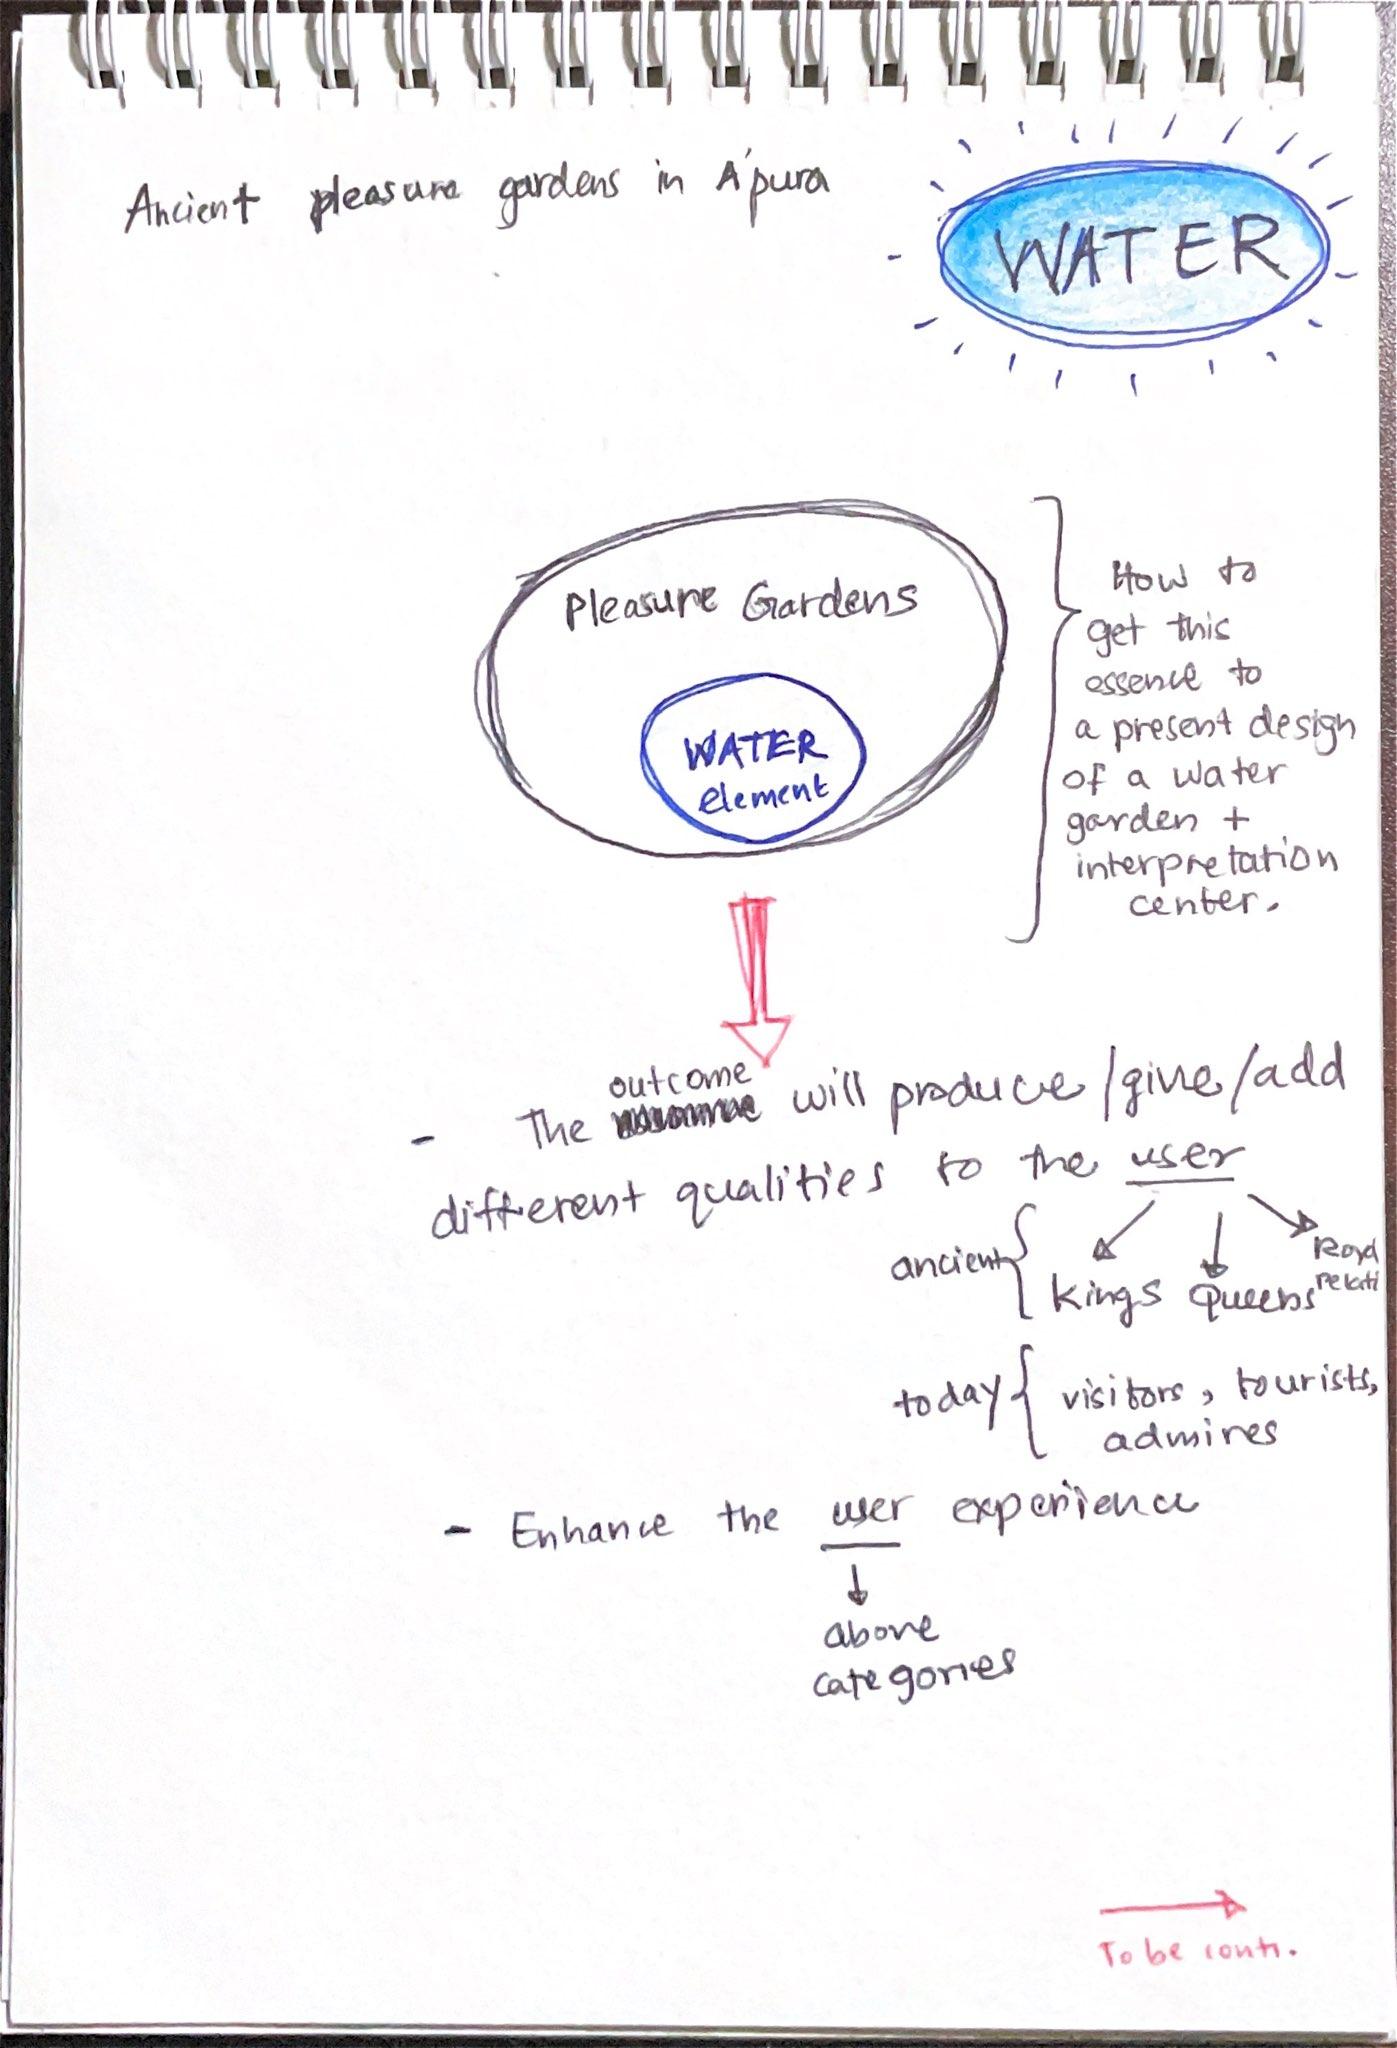 Ancient pleasure gardens in A'pura
WATER
Pleasure Gardens
WATER
element
How to
get this
essence to
a present design
of a water
garden +
interpretation
center.
outcome
- The will produce/give/add
different qualities to the user
ancient { kings Queens Royal
relati
today { visitors, tourists,
admires
- Enhance the user experience
above
categories
To be conti.